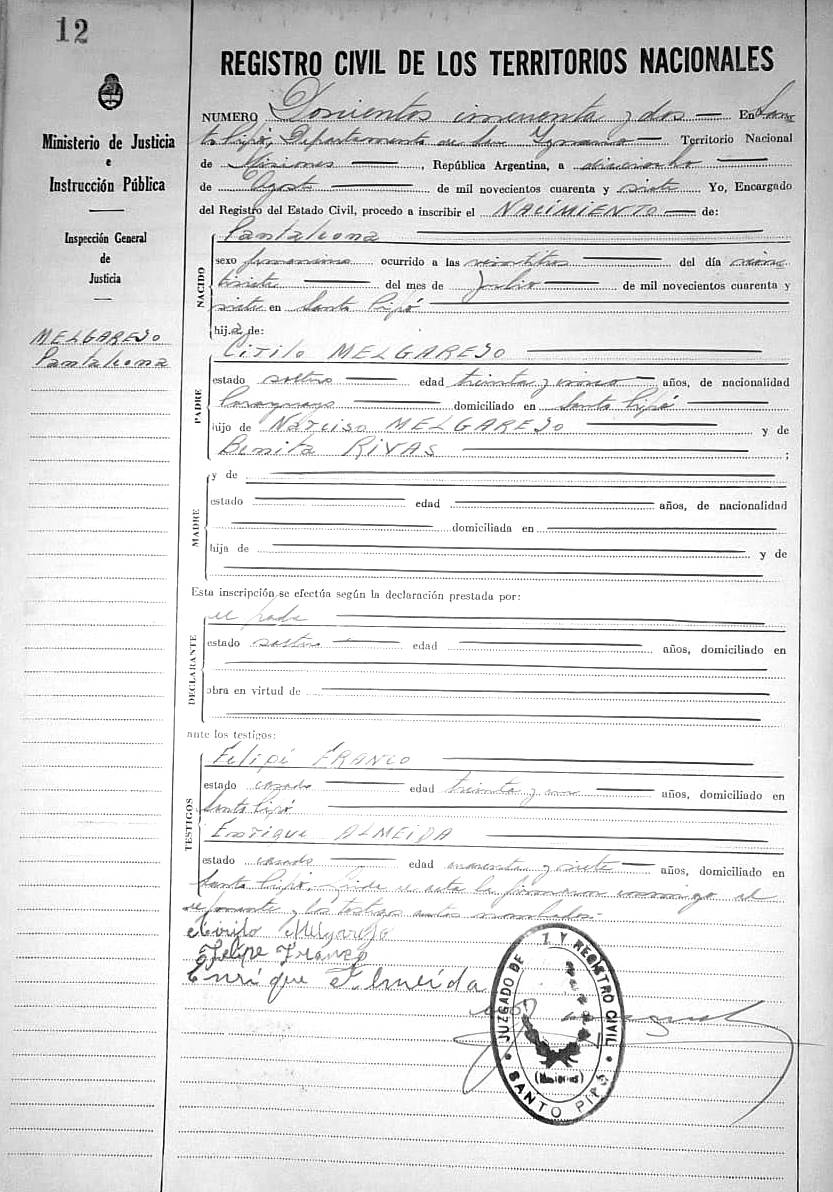 12
Ministerio de Justicia
e
Instrucción Pública
Inspección General
de
Justicia
MELGAREJO
Pantaleona
REGISTRO CIVIL DE LOS TERRITORIOS NACIONALES
NUMERO Doscientos cincuenta y dos En San
to Pipó, Departamento de San Ignacio Territorio Nacional
de Misiones, República Argentina, a dieciocho
de Agosto de mil novecientos cuarenta y siete Yo, Encargado
del Registro del Estado Civil, procedo a inscribir el NACIMIENTO de:
NACIDO
Pantaleona
sexo femenino ocurrido a las veintitres del día vein
tisiete del mes de Julio de mil novecientos cuarenta y
siete en Santo Pipó
hija de:
PADRE
Cirilo MELGAREJO
estado soltero edad treinta y cinco años, de nacionalidad
Paraguayo domiciliado en Santo Pipó
hijo de Narciso MELGAREJO y de
Benita RIVAS ;
MADRE
y de
estado edad años, de nacionalidad
domiciliada en
hija de y de
Esta inscripción se efectúa según la declaración prestada por:
DECLARANTE
el padre
estado soltero edad años, domiciliado en
obra en virtud de
ante los testigos:
TESTIGOS
Felipe FRANCO
estado casado edad treinta y un años, domiciliado en
Santo Pipó
Enrique ALMEIDA
estado casado edad cuarenta y siete años, domiciliado en
Santo Pipó. Leída el acta la firmaron conmigo el
exponente y los testigos antes nombrados.-
Cirilo Melgarejo
Felipe Franco
Enrique Almeida
JUZGADO DE Z Y REGISTRO CIVIL
SANTO PIPÓ